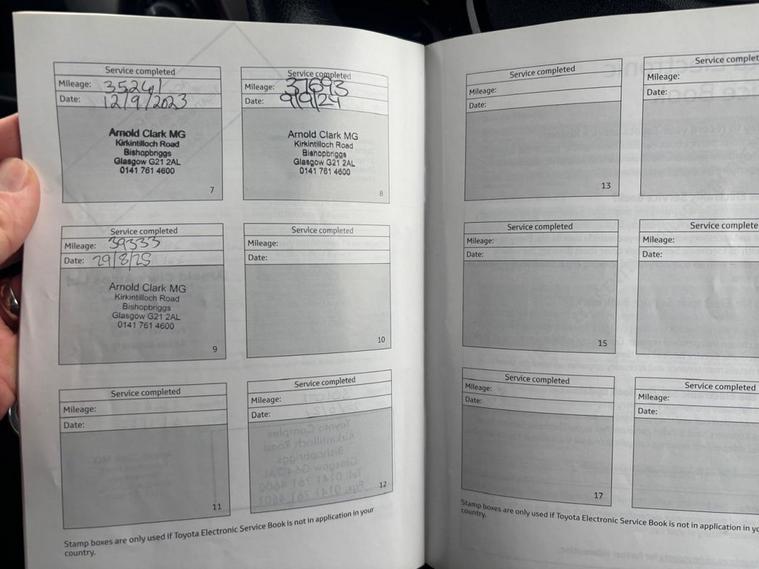 Service completed
Mileage: 35241
Date: 12/9/2023
Arnold Clark MG
Kirkintilloch Road
Bishopbriggs
Glasgow G21 2AL
0141 761 4600
7
Service completed
Mileage: 37693
Date: 9/9/24
Arnold Clark MG
Kirkintilloch Road
Bishopbriggs
Glasgow G21 2AL
0141 761 4600
8
Service completed
Mileage: 39333
Date: 29/8/25
Arnold Clark MG
Kirkintilloch Road
Bishopbriggs
Glasgow G21 2AL
0141 761 4600
9
Service completed
Mileage:
Date:
10
Service completed
Mileage:
Date:
11
Service completed
Mileage:
Date:
12
Stamp boxes are only used if Toyota Electronic Service Book is not in application in your
country.
Service completed
Mileage:
Date:
13
Service
Mileage:
Date:
Service completed
Mileage:
Date:
15
Service
Mileage:
Date:
Service completed
Mileage:
Date:
17
Service completed
Mileage:
Date:
Stamp boxes are only used if Toyota Electronic Service Book is not in application in
country.